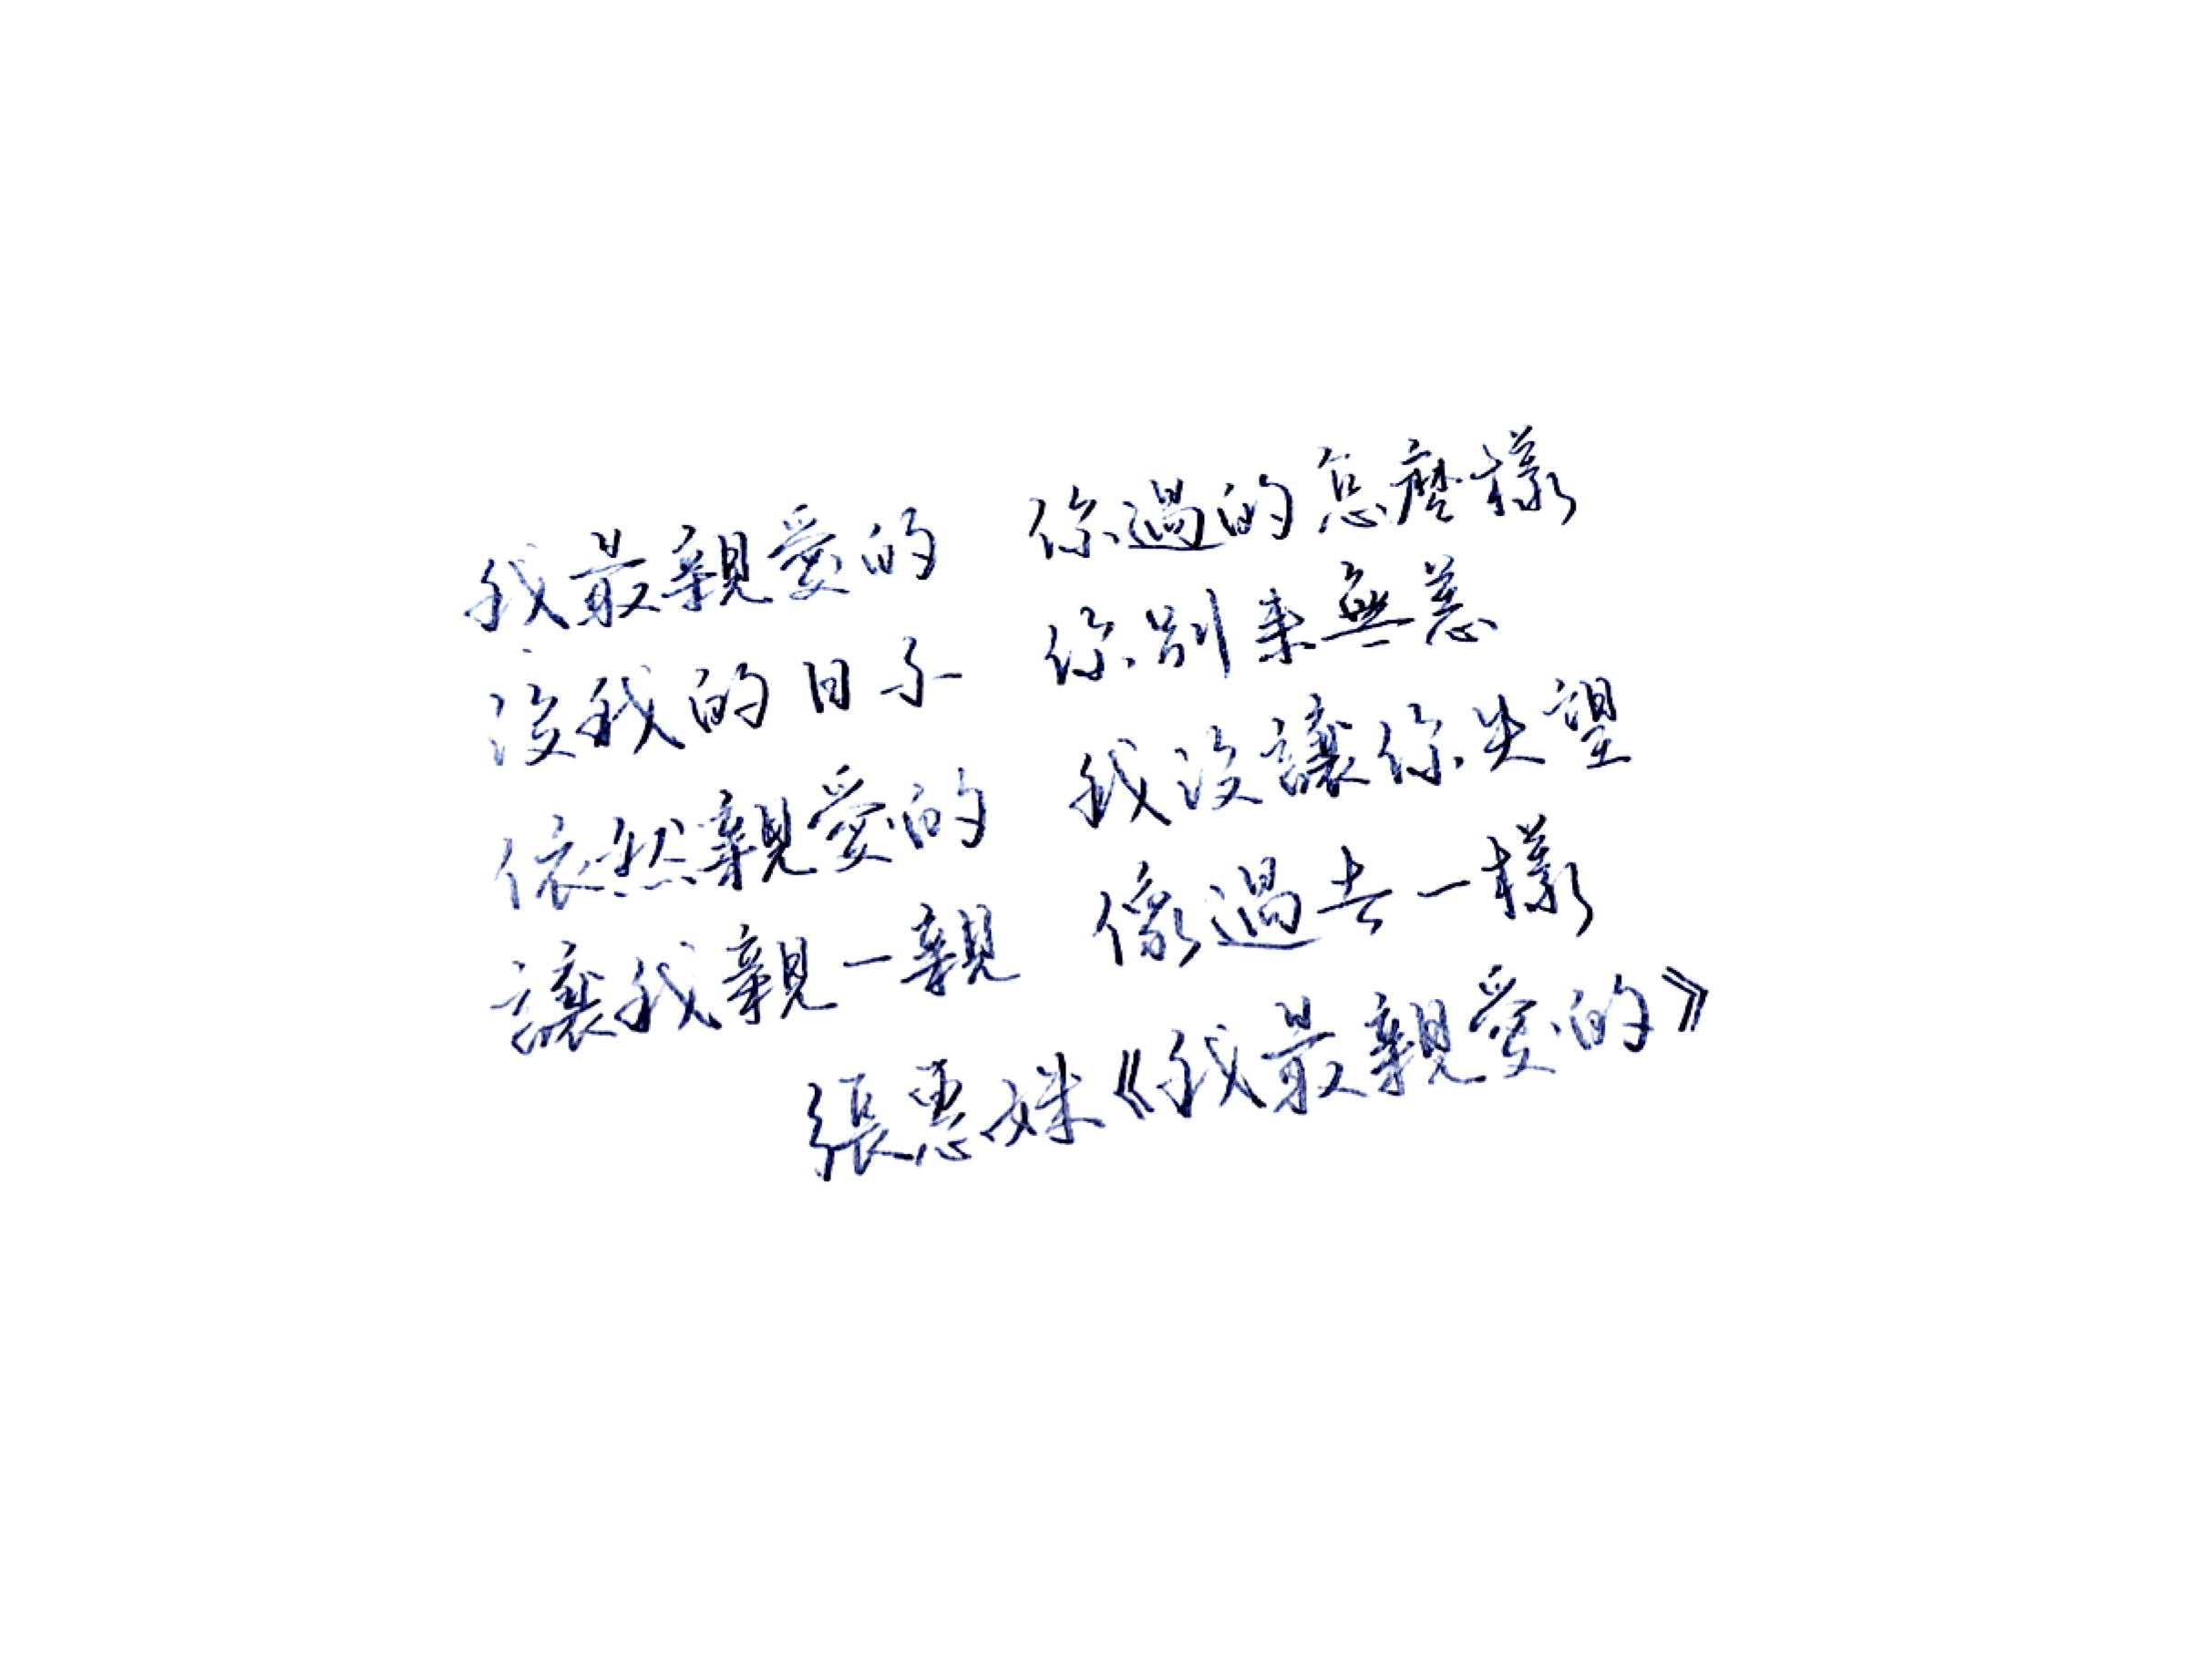 我最親愛的 你過的怎麼樣
沒我的日子 你別來無恙
依然親愛的 我沒讓你失望
讓我親一親 像過去一樣
張惠妹《我最親愛的》